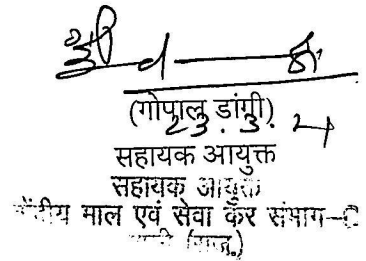 (गोपाल डांगी)
23.3.24
सहायक आयुक्त
सहायक आयुक्त
केंद्रीय माल एवं सेवा कर संभाग-C
(राज.)